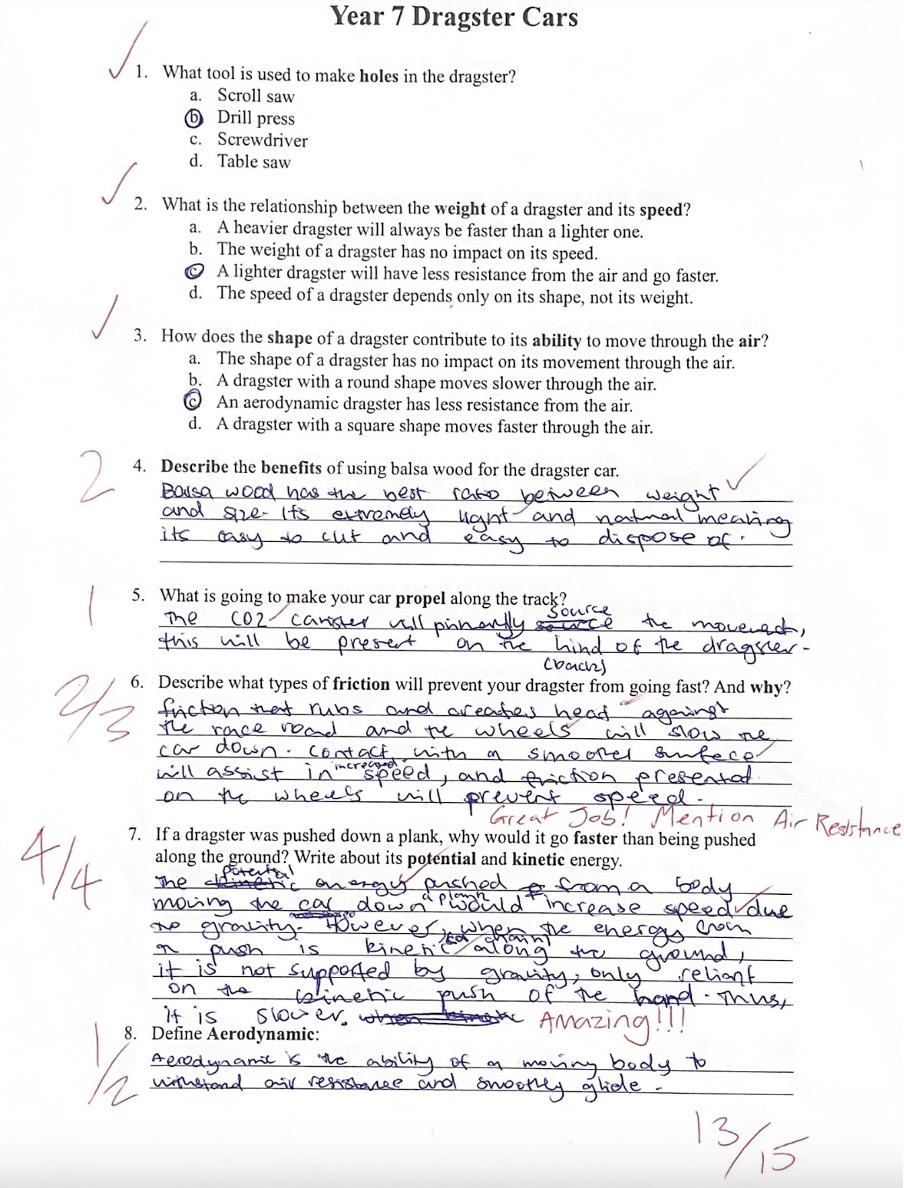 Year 7 Dragster Cars
1. What tool is used to make holes in the dragster?
a. Scroll saw
b. Drill press
c. Screwdriver
d. Table saw
2. What is the relationship between the weight of a dragster and its speed?
a. A heavier dragster will always be faster than a lighter one.
b. The weight of a dragster has no impact on its speed.
c. A lighter dragster will have less resistance from the air and go faster.
d. The speed of a dragster depends only on its shape, not its weight.
3. How does the shape of a dragster contribute to its ability to move through the air?
a. The shape of a dragster has no impact on its movement through the air.
b. A dragster with a round shape moves slower through the air.
c. An aerodynamic dragster has less resistance from the air.
d. A dragster with a square shape moves faster through the air.
2
4. Describe the benefits of using balsa wood for the dragster car.
Balsa wood has the best ratio between weight
and size. Its extremely light and natural meaning
its easy to cut and easy to dispose of.
1
5. What is going to make your car propel along the track?
source
The CO2 canister will the movement,
this will be present on the hind of the dragster.
(back)
2/3
6. Describe what types of friction will prevent your dragster from going fast? And why?
friction that rubs and creates heat against
the race road and the wheels will slow the
car down. Contact with a smoother surface
increased
will assist in speed, and friction presented
on the wheels will prevent speed.
Great Job! Mention Air Resistance
4/4
7. If a dragster was pushed down a plank, why would it go faster than being pushed
along the ground? Write about its potential and kinetic energy.
potential
The energy pushed from a body
a plank
moving the car down would increase speed due
to gravity. However, when the energy from
a push is kinetic along the ground,
it is not supported by gravity, only reliant
on the kinetic push of the hand. Thus,
it is slower. when kinetic
Amazing!!!
1/2
8. Define Aerodynamic:
Aerodynamic is the ability of a moving body to
withstand air resistance and smoothly glide.
13/15